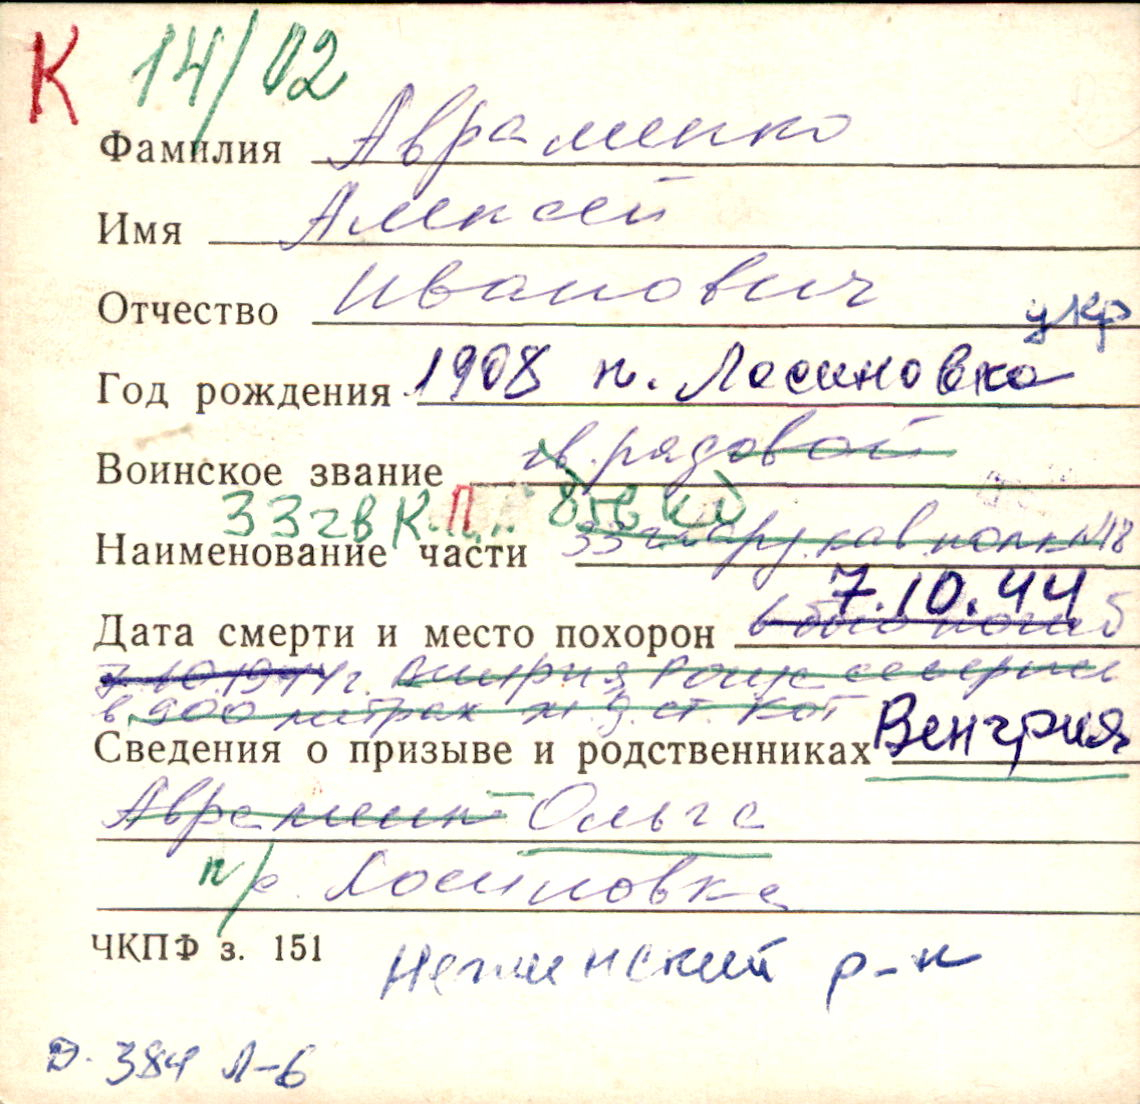 К 14/02
Фамилия Авраменко
Имя Алексей
Отчество Иванович
укр
Год рождения 1908 п. Лосиновка
Воинское звание гв. рядовой
33 гв К.П. 8 гв кд
Наименование части 33 кав. полк
7.10.44
Дата смерти и место похорон в бою погиб
7.10.1944г. севернее
в 900 метрах ж.д. ст.
Сведения о призыве и родственниках Венгрия
Авраменко Ольга
п/ с. Лосиновка
ЧКПФ з. 151
Нежинский р-н
Д. 384 Л-6